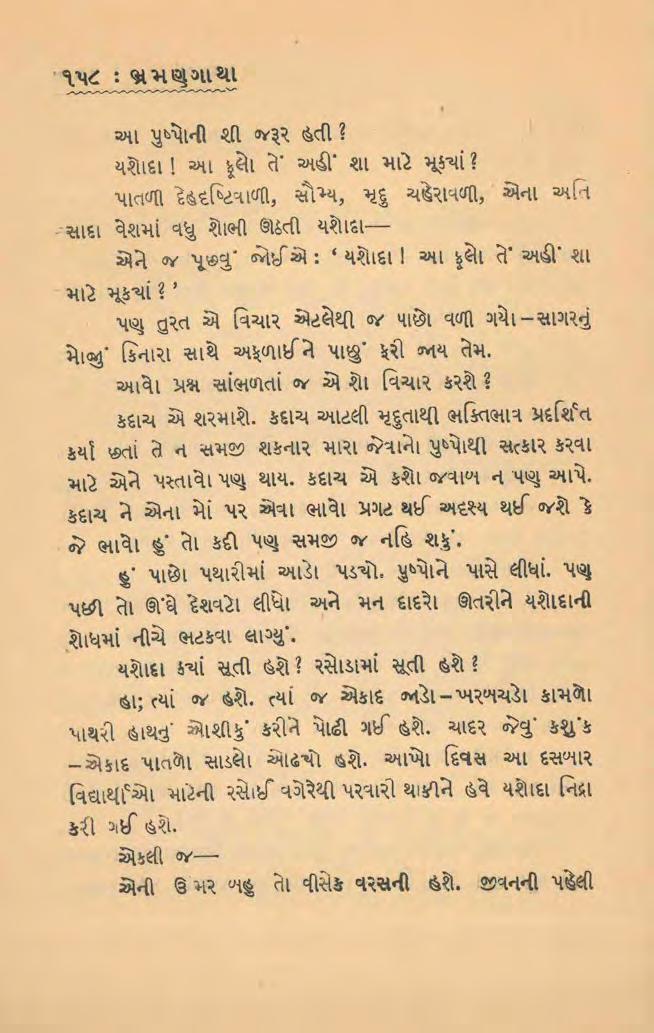 ૧૫૮ : ભ્રમણગાથા
આ પુષ્પોની શી જરૂર હતી ?
યશોદા ! આ ફૂલો તેં અહીં શા માટે મૂક્યાં ?
પાતળી દેહદૃષ્ટિવાળી, સૌમ્ય, મૃદુ ચહેરાવળી, એના અતિ
સાદા વેશમાં વધુ શોભી ઊઠતી યશોદા—
એને જ પૂછવું જોઈએ : ‘યશોદા ! આ ફૂલો તેં અહીં શા
માટે મૂક્યાં ?’
પણ તુરત એ વિચાર એટલેથી જ પાછો વળી ગયો–સાગરનું
મોજું કિનારા સાથે અફળાઈને પાછું ફરી જાય તેમ.
આવો પ્રશ્ન સાંભળતાં જ એ શો વિચાર કરશે ?
કદાચ એ શરમાશે. કદાચ આટલી મૃદુતાથી ભક્તિભાવ પ્રદર્શિત
કર્યા છતાં તે ન સમજી શકનાર મારા જેવાનો પુષ્પોથી સત્કાર કરવા
માટે એને પસ્તાવો પણ થાય. કદાચ એ કશો જવાબ ન પણ આપે.
કદાચ ને એના મોં પર એવા ભાવો પ્રગટ થઈ અદૃશ્ય થઈ જશે કે
જે ભાવો હું તો કદી પણ સમજી જ નહિ શકું.
હું પાછો પથારીમાં આડો પડ્યો. પુષ્પોને પાસે લીધાં. પણ
પછી તો ઊંઘે દેશવટો લીધો અને મન દાદરો ઊતરીને યશોદાની
શોધમાં નીચે ભટકવા લાગ્યું.
યશોદા ક્યાં સૂતી હશે ? રસોડામાં સૂતી હશે ?
હા; ત્યાં જ હશે. ત્યાં જ એકાદ જાડો–ખરબચડો કામળો
પાથરી હાથનું ઓશીકું કરીને પોઢી ગઈ હશે. ચાદર જેવું કશુંક
–એકાદ પાતળો સાડલો ઓઢ્યો હશે. આખો દિવસ આ દસબાર
વિદ્યાર્થીઓ માટેની રસોઈ વગેરેથી પરવારી થાકીને હવે યશોદા નિદ્રા
કરી ગઈ હશે.
એકલી જ—
એની ઉંમર બહુ તો વીસેક વરસની હશે. જીવનની પહેલી